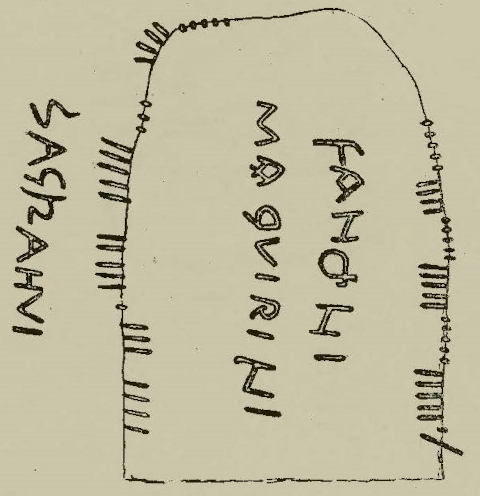 FANONI
MAQVIRINI
SAGRANVI